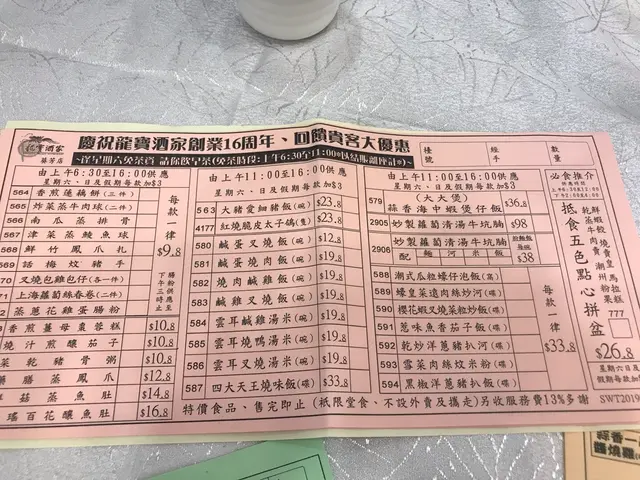 龍寶酒家
葵芳店
慶祝龍寶酒家創業16周年、回饋貴客大優惠
檯號
經手
數量
由上午6:30至16:00供應
星期六、日及假期每款加$3
564 香煎蓮藕餅(三件)
565 炸菜蒸牛肉球(二件)
566 南瓜蒸排骨
567 津菜蒸鯪魚球
568 鮮竹鳳爪扎
569 話梅炆豬手
570 叉燒包雞包仔(各一件)
571 上海蘿蔔絲春卷(二件)
蒸蔥花雞蛋腸粉
每款一律$9.8
腸粉下午三時停止供應
香煎薑母棗蓉糕 $10.8
燒汁煎釀茄子 $10.8
菜乾豬骨粥 $10.8
膳蒸鳳爪 $12.8
菇蒸魚肚 $14.8
瑤百花釀魚肚 $16.8
由上午11:00至16:00供應
星期六、日及假期每款加$3
563 大豬愛細豬飯(碗) $23.8
4177 紅燒脆皮太子鴿(隻) $23.8
580 鹹蛋叉燒飯(碗) $12.8
581 鹹蛋燒肉飯(碗) $19.8
582 燒肉鹹雞飯(碗) $19.8
583 鹹雞叉燒飯(碗) $19.8
584 雲耳鹹雞湯米(碗) $19.8
585 雲耳燒鴨湯米(碗) $19.8
586 雲耳叉燒湯米(碗) $19.8
587 四大天王燒味飯(碟) $33.8
由上午11:00至16:00供應
星期六、日及假期每款加$3
579 (大大煲)
蒜香海中蝦煲仔飯 $36.8
2905 妙製蘿蔔清湯牛坑腩 $98
2906 妙製蘿蔔清湯牛坑腩
配麵河米飯
$38
588 潮式瓜粒蠔仔泡飯(窩)
589 蠔皇菜遠肉絲炒河(碟)
590 櫻花蝦叉燒菜粒炒飯(碟)
591 蔥味魚香茄子飯(碟)
592 乾炒洋蔥豬扒河(碟)
593 雪菜肉絲炆米粉(碟)
594 黑椒洋蔥豬扒飯(碟)
每款一律$33.8
必食推介
供應時間
抵食五色點心拼盆
鮮蝦餃
燒賣皇
馬拉糕
乾蒸牛肉賣
潮州粉果
777
$26.8
星期六、日及假期每款加$3
特價食品、售完即止(祇限堂食、不設外賣及攜走)另收服務費13%多謝
SWT2019
蒜香一